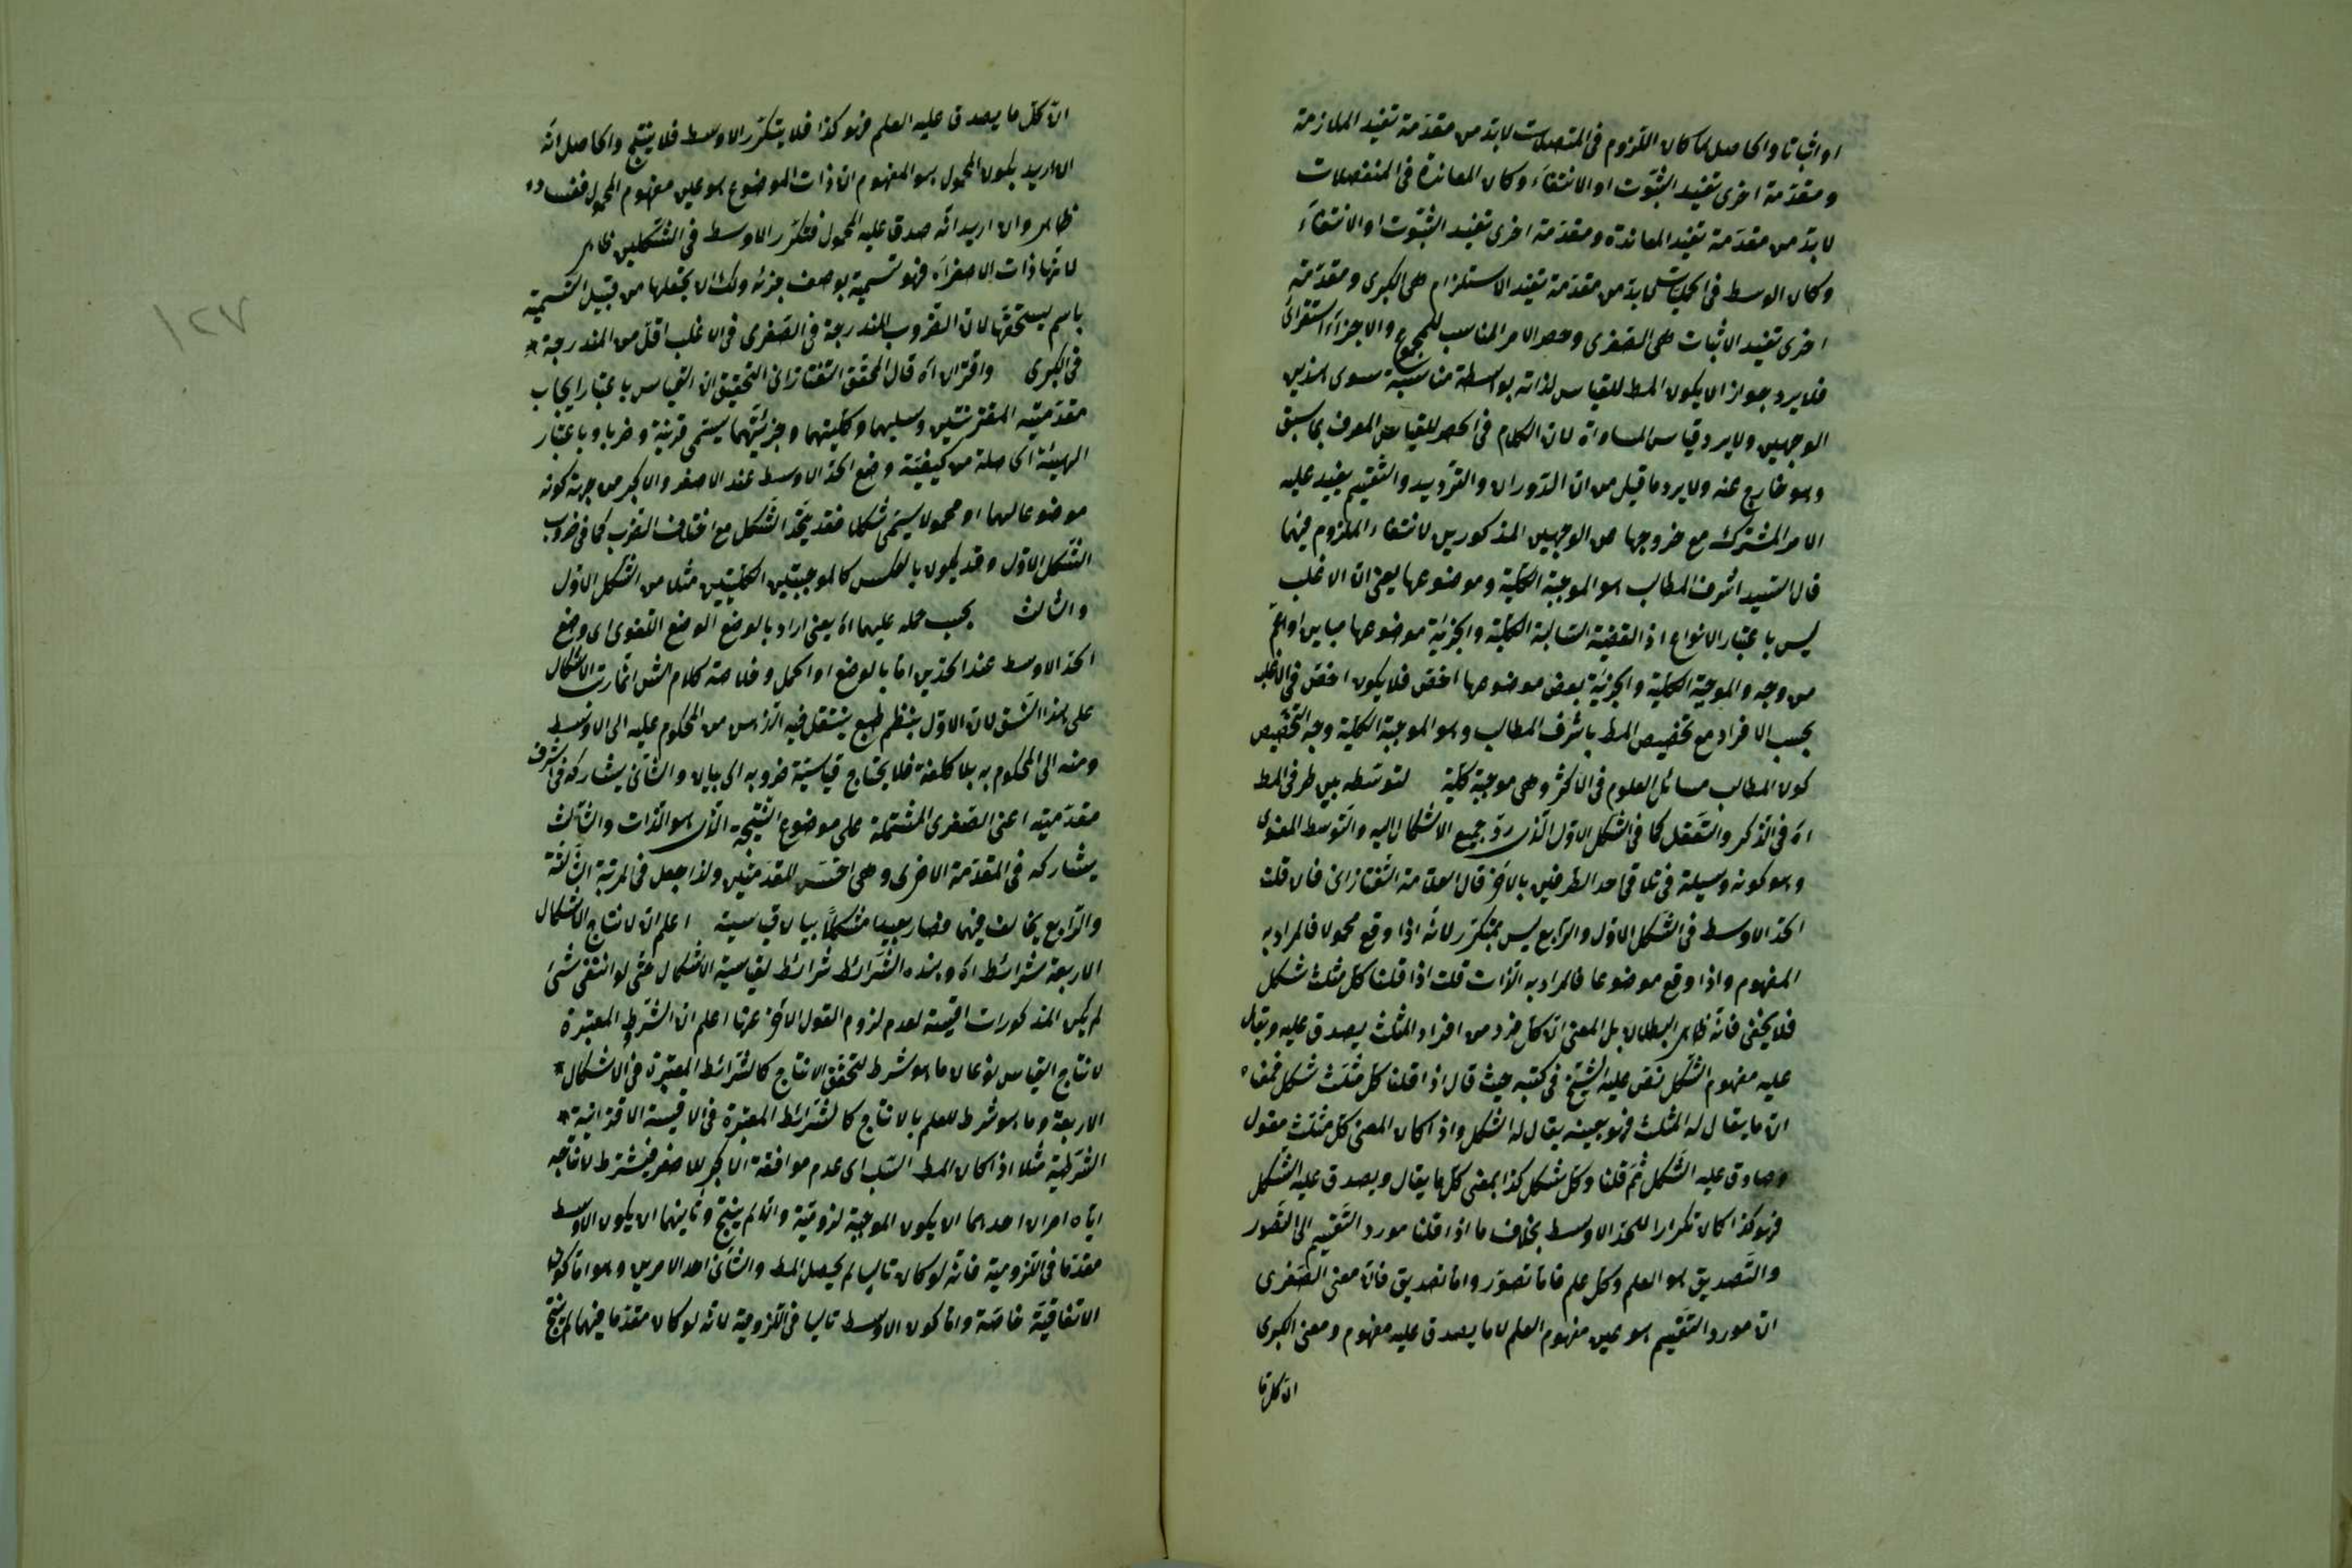 او اثباتا والحاصل لما كان اللزوم فى المتصلات لابد من مقدمة تفيد الملازمة
ومقدمة اخرى تفيد الثبوت او الانتفاء وكان المعاندة فى المنفصلات
لابد من مقدمة تفيد المعاندة ومقدمة اخرى تفيد الثبوت او الانتفاء
وكان الوسط فى الحمليات لابد من مقدمة تفيد الاستلزام هى الكبرى ومقدمة
اخرى تفيد الاثبات هى الصغرى وحصر الامر المناسب للمجموع والاجزاء استقرائى
فلا يرد جواز ان يكون المط للقياس لذاته بواسطة مناسبة سوى هذين
الوجهين ولا يرد قياس المساواة لان الكلام فى الحصر للقياس المعرف بما سبق
وهو خارج عنه ولا يرد ما قيل من ان الدوران والترديد والتقسيم يفيد عليه
الامر المشترك مع خروجها من الوجهين المذكورين لانتفاء الملزوم فيها
قال السيد اشرف المطالب هو الموجبة الكلية وموضوعها يعنى ان الاغلب
ليس باعتبار الانواع اذ القضية السالبة الكلية والجزئية موضوعها مباين او اعم
من وجه والموجبة الكلية والجزئية بعض موضوعها اخص فلا يكون اخص فى الاغلب
بحسب الافراد مع تخصيص المط باشرف المطالب وهو الموجبة الكلية وجه التخصيص
كون المطالب مسائل العلوم فى الاكثر وهى موجبة كلية لتوسطه بين طرفى المط
اه فى الذكر والتعقل كما فى الشكل الاول الذى رد جميع الاشكال اليه والتوسط المعنوى
وهو كونه وسيلة فى تلاقى احد الطرفين بالاخر قال العلامة التفتازانى فان قلت
الحد الاوسط فى الشكل الاول والرابع ليس بمتكرر لانه اذا وقع محمولا فالمراد به
المفهوم واذا وقع موضوعا فالمراد به الذات قلت اذا قلنا كل مثلث شكل
فلا يخفى فانه ظاهر البطلان بل المعنى ان كل فرد من افراد المثلث يصدق عليه ويقال
عليه مفهوم الشكل نص عليه الشيخ فى كتبه حيث قال اذا قلنا كل مثلث شكل فمعناه
ان ما يقال له المثلث فهو بعينه يقال له الشكل واذا كان المعنى كل مثلث مقول
وصادق عليه الشكل ثم قلنا وكل شكل كذا بمعنى كل ما يقال ويصدق عليه الشكل
فهو كذا كان تكرارا للحد الاوسط بخلاف ما اذا قلنا مورد التقسيم الى التصور
والتصديق هو العلم وكل علم فاما تصور واما تصديق فان معنى الصغرى
ان مورد التقسيم هو عين مفهوم العلم لا ما يصدق عليه مفهوم ومعنى الكبرى
ان كل ما
ان كل ما يصدق عليه العلم فهو كذا فلا يتكرر الاوسط فلا ينتج والحاصل انه
ان اريد بكون المحمول هو المفهوم ان ذات الموضوع هو عين مفهوم المحمول ففساده
ظاهر وان اريد انه صدق عليه المحمول فتكرر الاوسط فى الشكلين ظاهر
لانها ذات الاصغر اه فهو تسمية بوصف جزئه ولك ان تجعلها من قبيل التسمية
باسم يستحقها لان الضروب المندرجة فى الصغرى فى الاغلب اقل من المندرجة
فى الكبرى واقتران اه قال المحقق التفتازانى التحقيق ان القياس باعتبار ايجاب
مقدمتيه المقترنتين وسلبهما وكليتهما وجزئيتهما يسمى قرينة وضربا وباعتبار
الهيئة الحاصلة من كيفية وضع الحد الاوسط عند الاصغر والاكبر من جهة كونه
موضوعا لهما او محمولا يسمى شكلا فقد يتحد الشكل مع اختلاف الضرب كما فى ضروب
الشكل الاول وقد يكون بالعكس كالموجبتين الكليتين مثلا من الشكل الاول
والثالث بحسب حمله عليهما اه يعنى اراد بالوضع الوضع اللغوى اى وضع
الحد الاوسط عند الحدين اما بالوضع او الحمل وخلاصة كلام الش انما رتب الاشكال
على هذا النسق لان الاول ينظم طبع ينتقل فيه الذهن من المحكوم عليه الى الاوسط
ومنه الى المحكوم به بلا كلفة فلا يحتاج قياسية ضروبه الى بيان والثانى يشاركه فى اشرف
مقدمتيه اعنى الصغرى المشتملة على موضوع النتيجة الذى هو الذات والثالث
يشاركه فى المقدمة الاخرى وهى اخس المقدمتين ولذا جعل فى المرتبة الثالثة
والرابع يخالف فيهما فصار بعيدا مشكلا بيان قياسيته اعلم ان لانتاج الاشكال
الاربعة شرائط اه وهذه الشرائط شرائط لقياسية الاشكال حتى لو انتفى شئ
لم يكن المذكورات اقيسة لعدم لزوم القول الاخر عنها اعلم ان الشرط المعتبرة
لانتاج القياس نوعان ما هو شرط لتحقق الانتاج كالشرائط المعتبرة فى الاشكال
الاربعة وما هو شرط للعلم بالانتاج كالشرائط المعتبرة فى الاقيسة الاقترانية
الشرطية مثلا اذا كان المط السلب اى عدم موافقة الاكبر للاصغر فيشترط لانتاجه
اياه امران احدهما ان يكون الموجبة لزومية والا لم ينتج وثانيهما ان يكون الاوسط
مقدما فى اللزومية فانه لو كان تاليا لم يحصل المط والثانى احد الامرين وهو اما كون
الاتفاقية خاصة واما كون الاوسط تاليا فى اللزومية لانه لو كان مقدما فيها لم ينتج
١٢٧